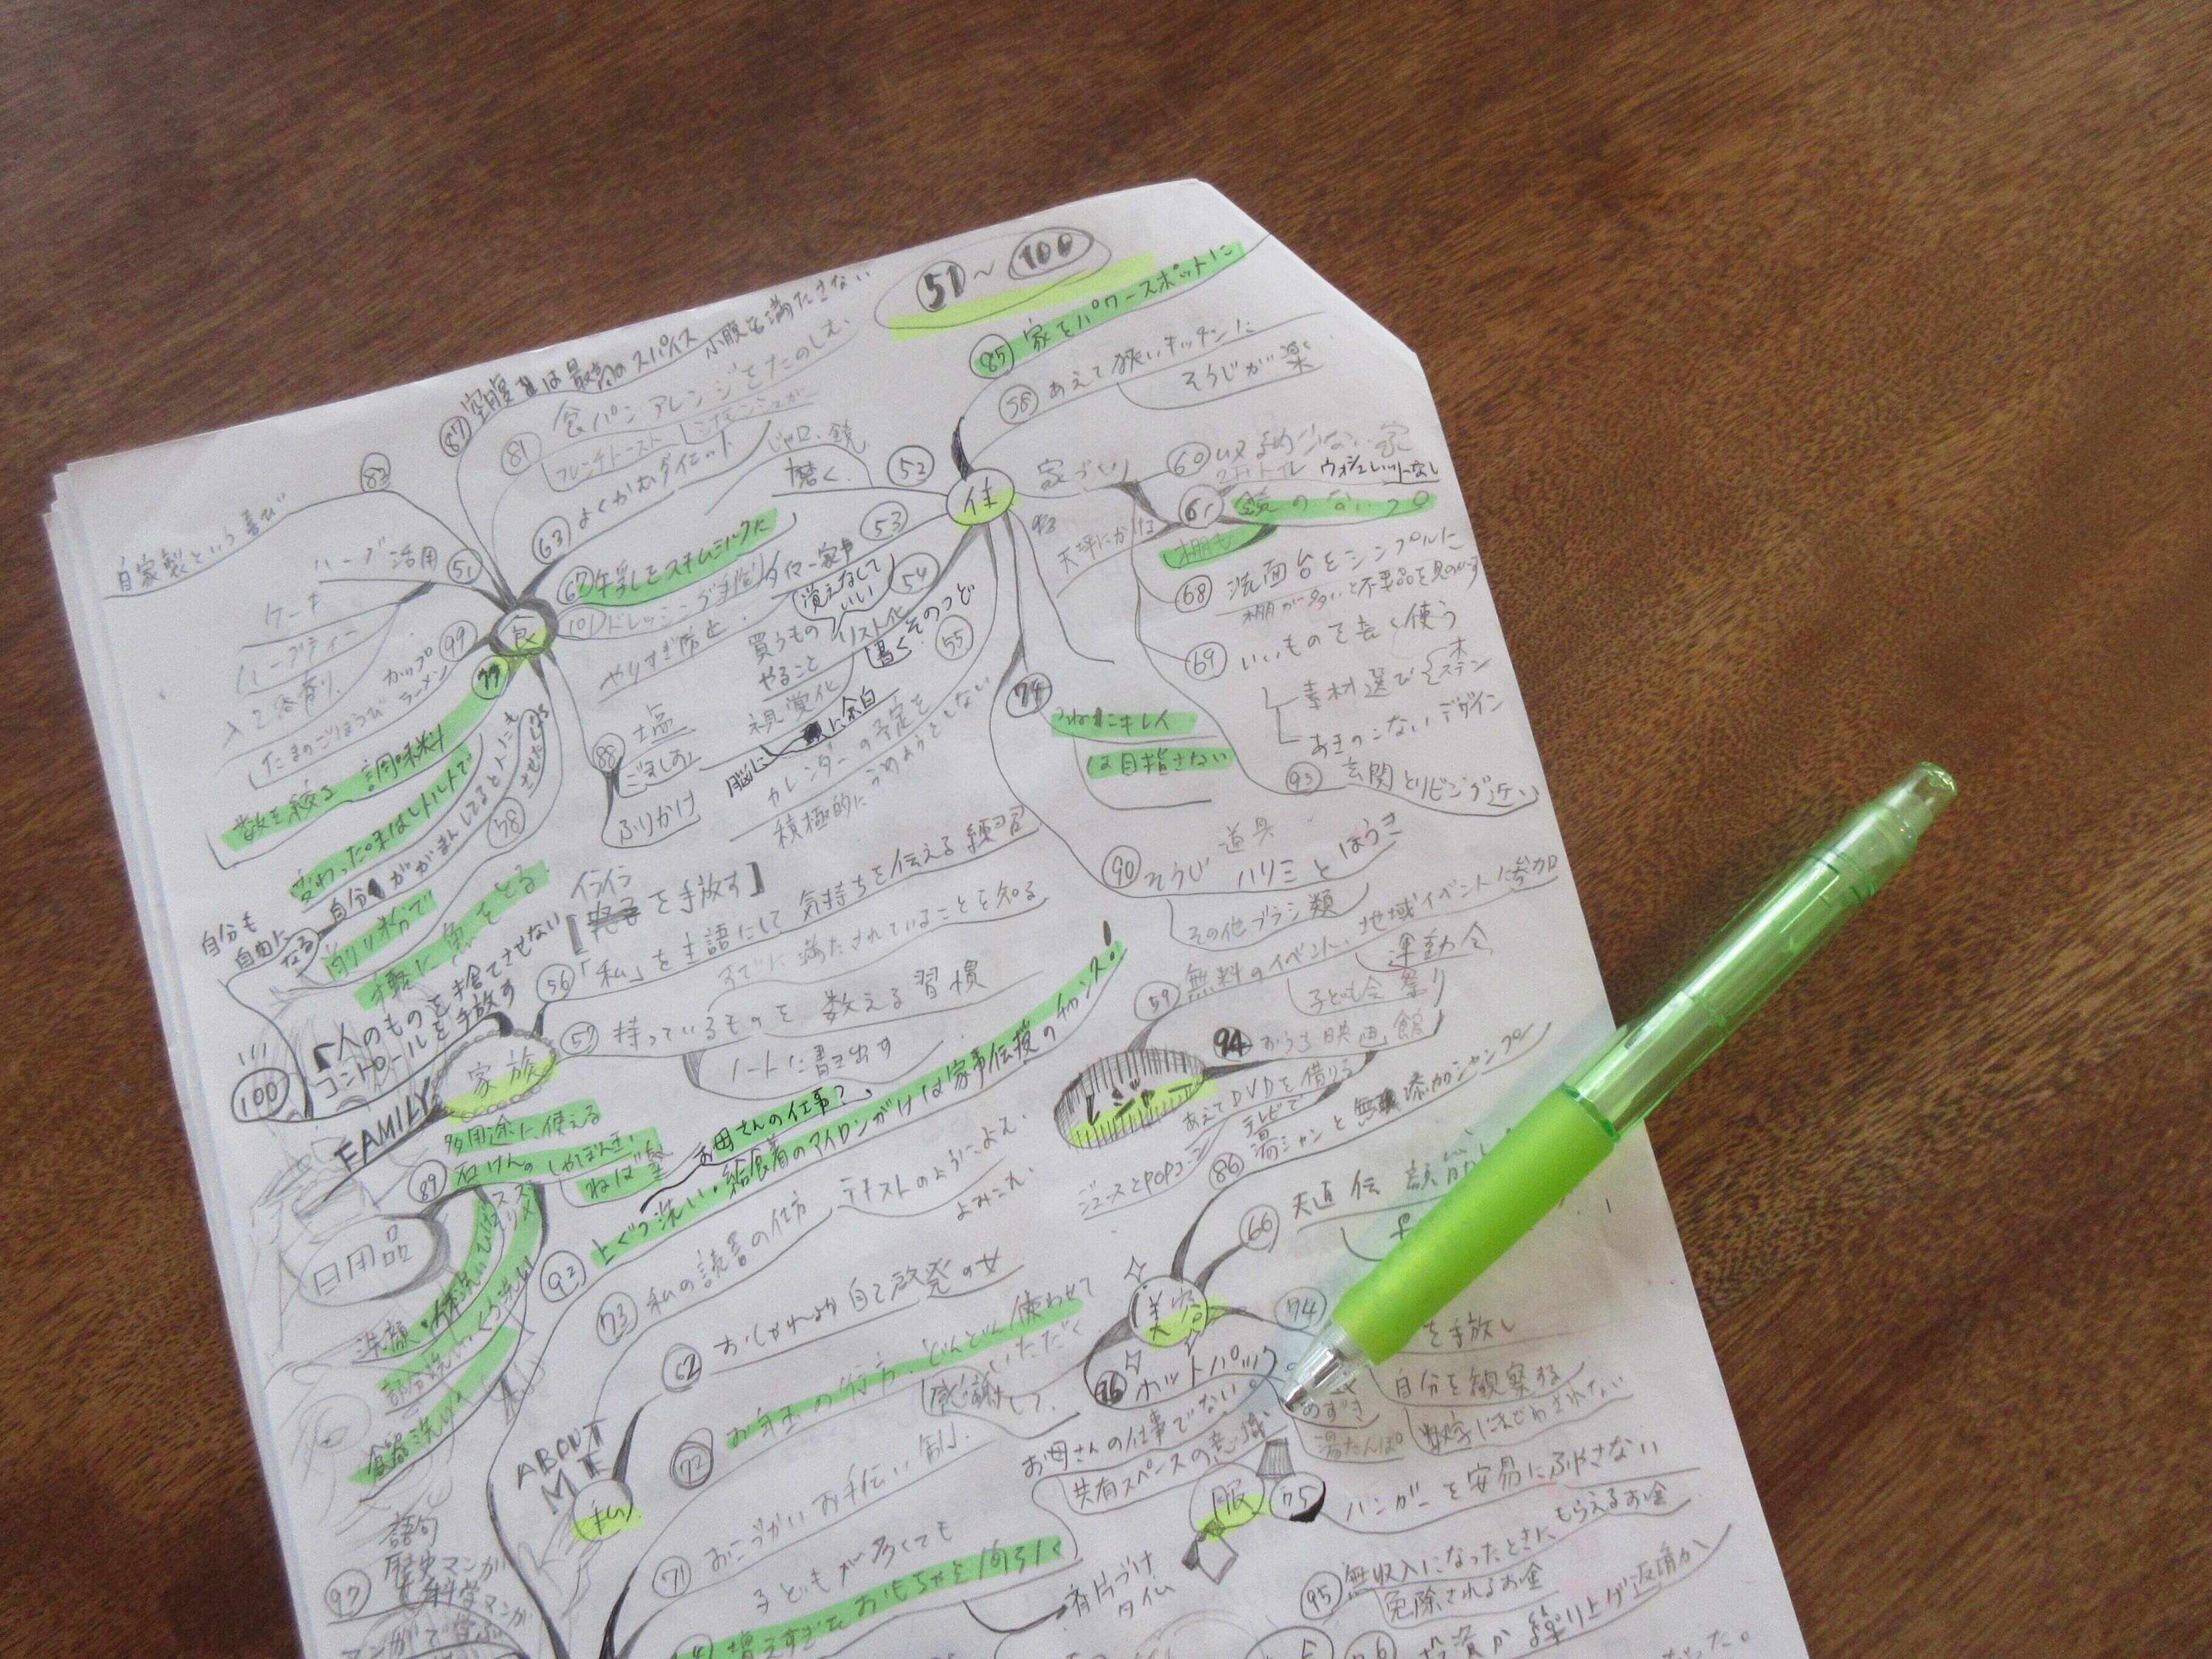 51 〜 100
85 家をパワースポットに
58 あえて狭いキッチンに
そうじが楽
87 空腹は最高のスパイス
小腹を満たさない
81 食パンアレンジをたのしむ
フレンチトースト
シナモンシュガー
63 よくかむダイエット
じゃ口、鏡
磨く 52
住
家づくり
60
2Fトイレ ウォシュレットなし
61 鏡のないフロ
棚も
68 洗面台をシンプルに
棚が多いと不要品を見のがす
69 いいものを長く使う
素材選び 木 ステン
あきのこないデザイン
93 玄関とリビング近い
82
自家製という喜び
ハーブ活用 51
ケーキ
ハーブティー
入浴剤
99 カップラーメン
たまのごほうび
食
67 牛乳をスキムミルクに
101 ドレッシング手作り
タイマー家事 53
やりすぎ防止
覚えなくていい 54
買うもの
やること
リスト化
書く そのつど
視覚化
脳に余白
55
カレンダーの予定を
積極的にうめようとしない
88 塩
ごましお
ふりかけ
77
数を絞る 調味料
変わった味はレトルトで
自分ががまんしてると人にも
させたくなる
58
削り粉で
手軽に魚をとる
79
つねにキレイ
は目指さない
90 そうじ道具
ハリミとほうき
その他ブラシ類
【イライラを手放す】
自分も
自由に
なる
「人のものを捨てさせない
コントロールを手放す
100
56 「私」を主語にして気持ちを伝える練習
すでに満たされていることを知る
57 持っているものを数える習慣
ノートに書き出す
家族
FAMILY
59 無料のイベント、地域イベントに参加
運動会
子ども会 祭り
94 おうち映画館
あえてDVDを借りる
レジャー
ジュースとPOPコーン
89 多用途に使える
石けんの
しゃぼん玉
ねば塾
日用品
お母さんの仕事?
92 上ぐつ洗い・給食着のアイロンがけは家事伝授のチャンス。
86 湯シャンと無添加シャンプー
66
73 私の読書の仕方
テキストのようによむ
よみこむ
62 おしゃれより自己啓発の女
72 お年玉の行方、どんどん使わせて
いただく
感謝して、
ABOUT
ME
私
美容
76 ホットパック
あずき
湯たんぽ
74
を手放し
自分を観察する
数字にまどわされない
お母さんの仕事でない。
共有スペースの意識
服
75 ハンガーを安易にふやさない
71 おこづかいお手伝い制、
子どもが多くても
増えすぎたおもちゃを
片づけ
タイム
95 無収入になったときにもらえるお金
免除されるお金
投資か繰り上げ返済か
洗顔・体洗い
食器洗い
97 語句
歴史マンガ
科学マンガ
マンガで学ぶ